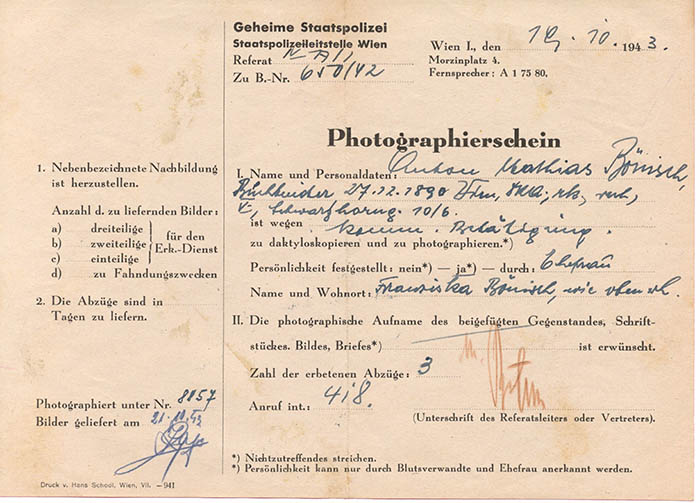 Geheime Staatspolizei
Staatspolizeileitstelle Wien
Referat
Zu B.-Nr. 650/42
Wien I., den 19. 10. 1943.
Morzinplatz 4.
Fernsprecher: A 1 75 80.
Photographierschein
1. Nebenbezeichnete Nachbildung
ist herzustellen.
Anzahl d. zu liefernden Bilder:
a) dreiteilige
b) zweiteilige
c) einteilige
für den
Erk.-Dienst
d) zu Fahndungszwecken
2. Die Abzüge sind in
Tagen zu liefern.
Photographiert unter Nr. 8857
Bilder geliefert am
I. Name und Personaldaten: Anton Mathias Bönisch,
Buchbinder 27.12.1890 Wien,
10/6.
ist wegen komm. Betätigung.
zu daktyloskopieren und zu photographieren.*)
Persönlichkeit festgestellt: nein*) — ja*) — durch: Ehefrau
Name und Wohnort: Franziska Bönisch, wie oben wh.
II. Die photographische Aufname des beigefügten Gegenstandes, Schrift-
stückes. Bildes, Briefes*) ist erwünscht.
Zahl der erbetenen Abzüge: 3
Anruf int.: 418
(Unterschrift des Referatsleiters oder Vertreters).
*) Nichtzutreffendes streichen.
*) Persönlichkeit kann nur durch Blutsverwandte und Ehefrau anerkannt werden.
Druck v. Hans School, Wien, VII. — 941